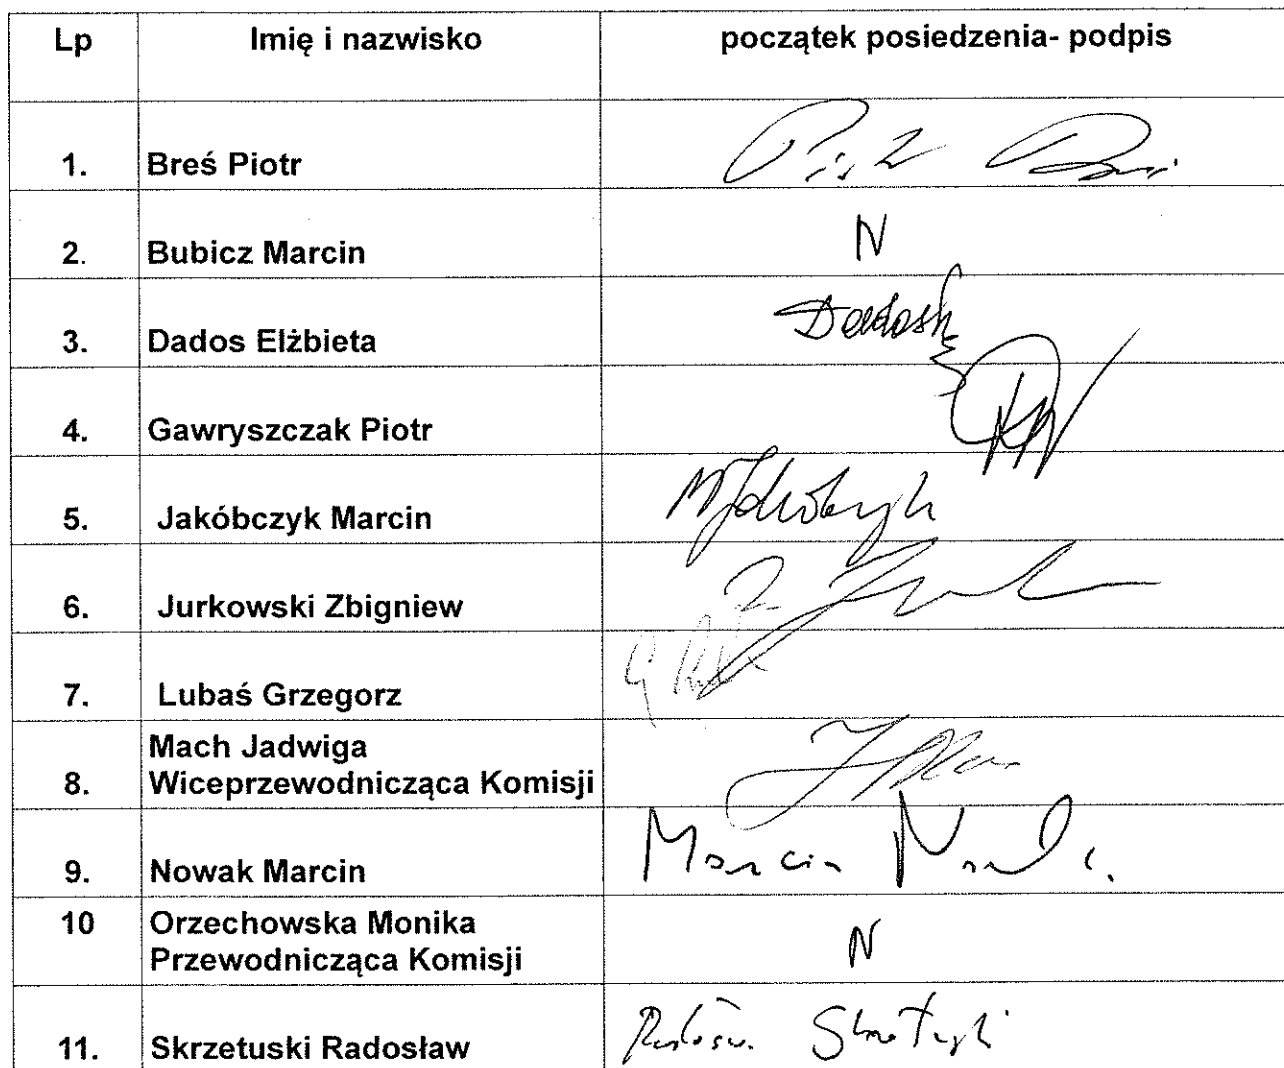 Lp Imię i nazwisko początek posiedzenia- podpis
1. Breś Piotr
2. Bubicz Marcin N
3. Dados Elżbieta
4. Gawryszczak Piotr
5. Jakóbczyk Marcin
6. Jurkowski Zbigniew
7. Lubaś Grzegorz
Mach Jadwiga
8. Wiceprzewodnicząca Komisji
9. Nowak Marcin Marcin
10 Orzechowska Monika N
Przewodnicząca Komisji
11. Skrzetuski Radosław